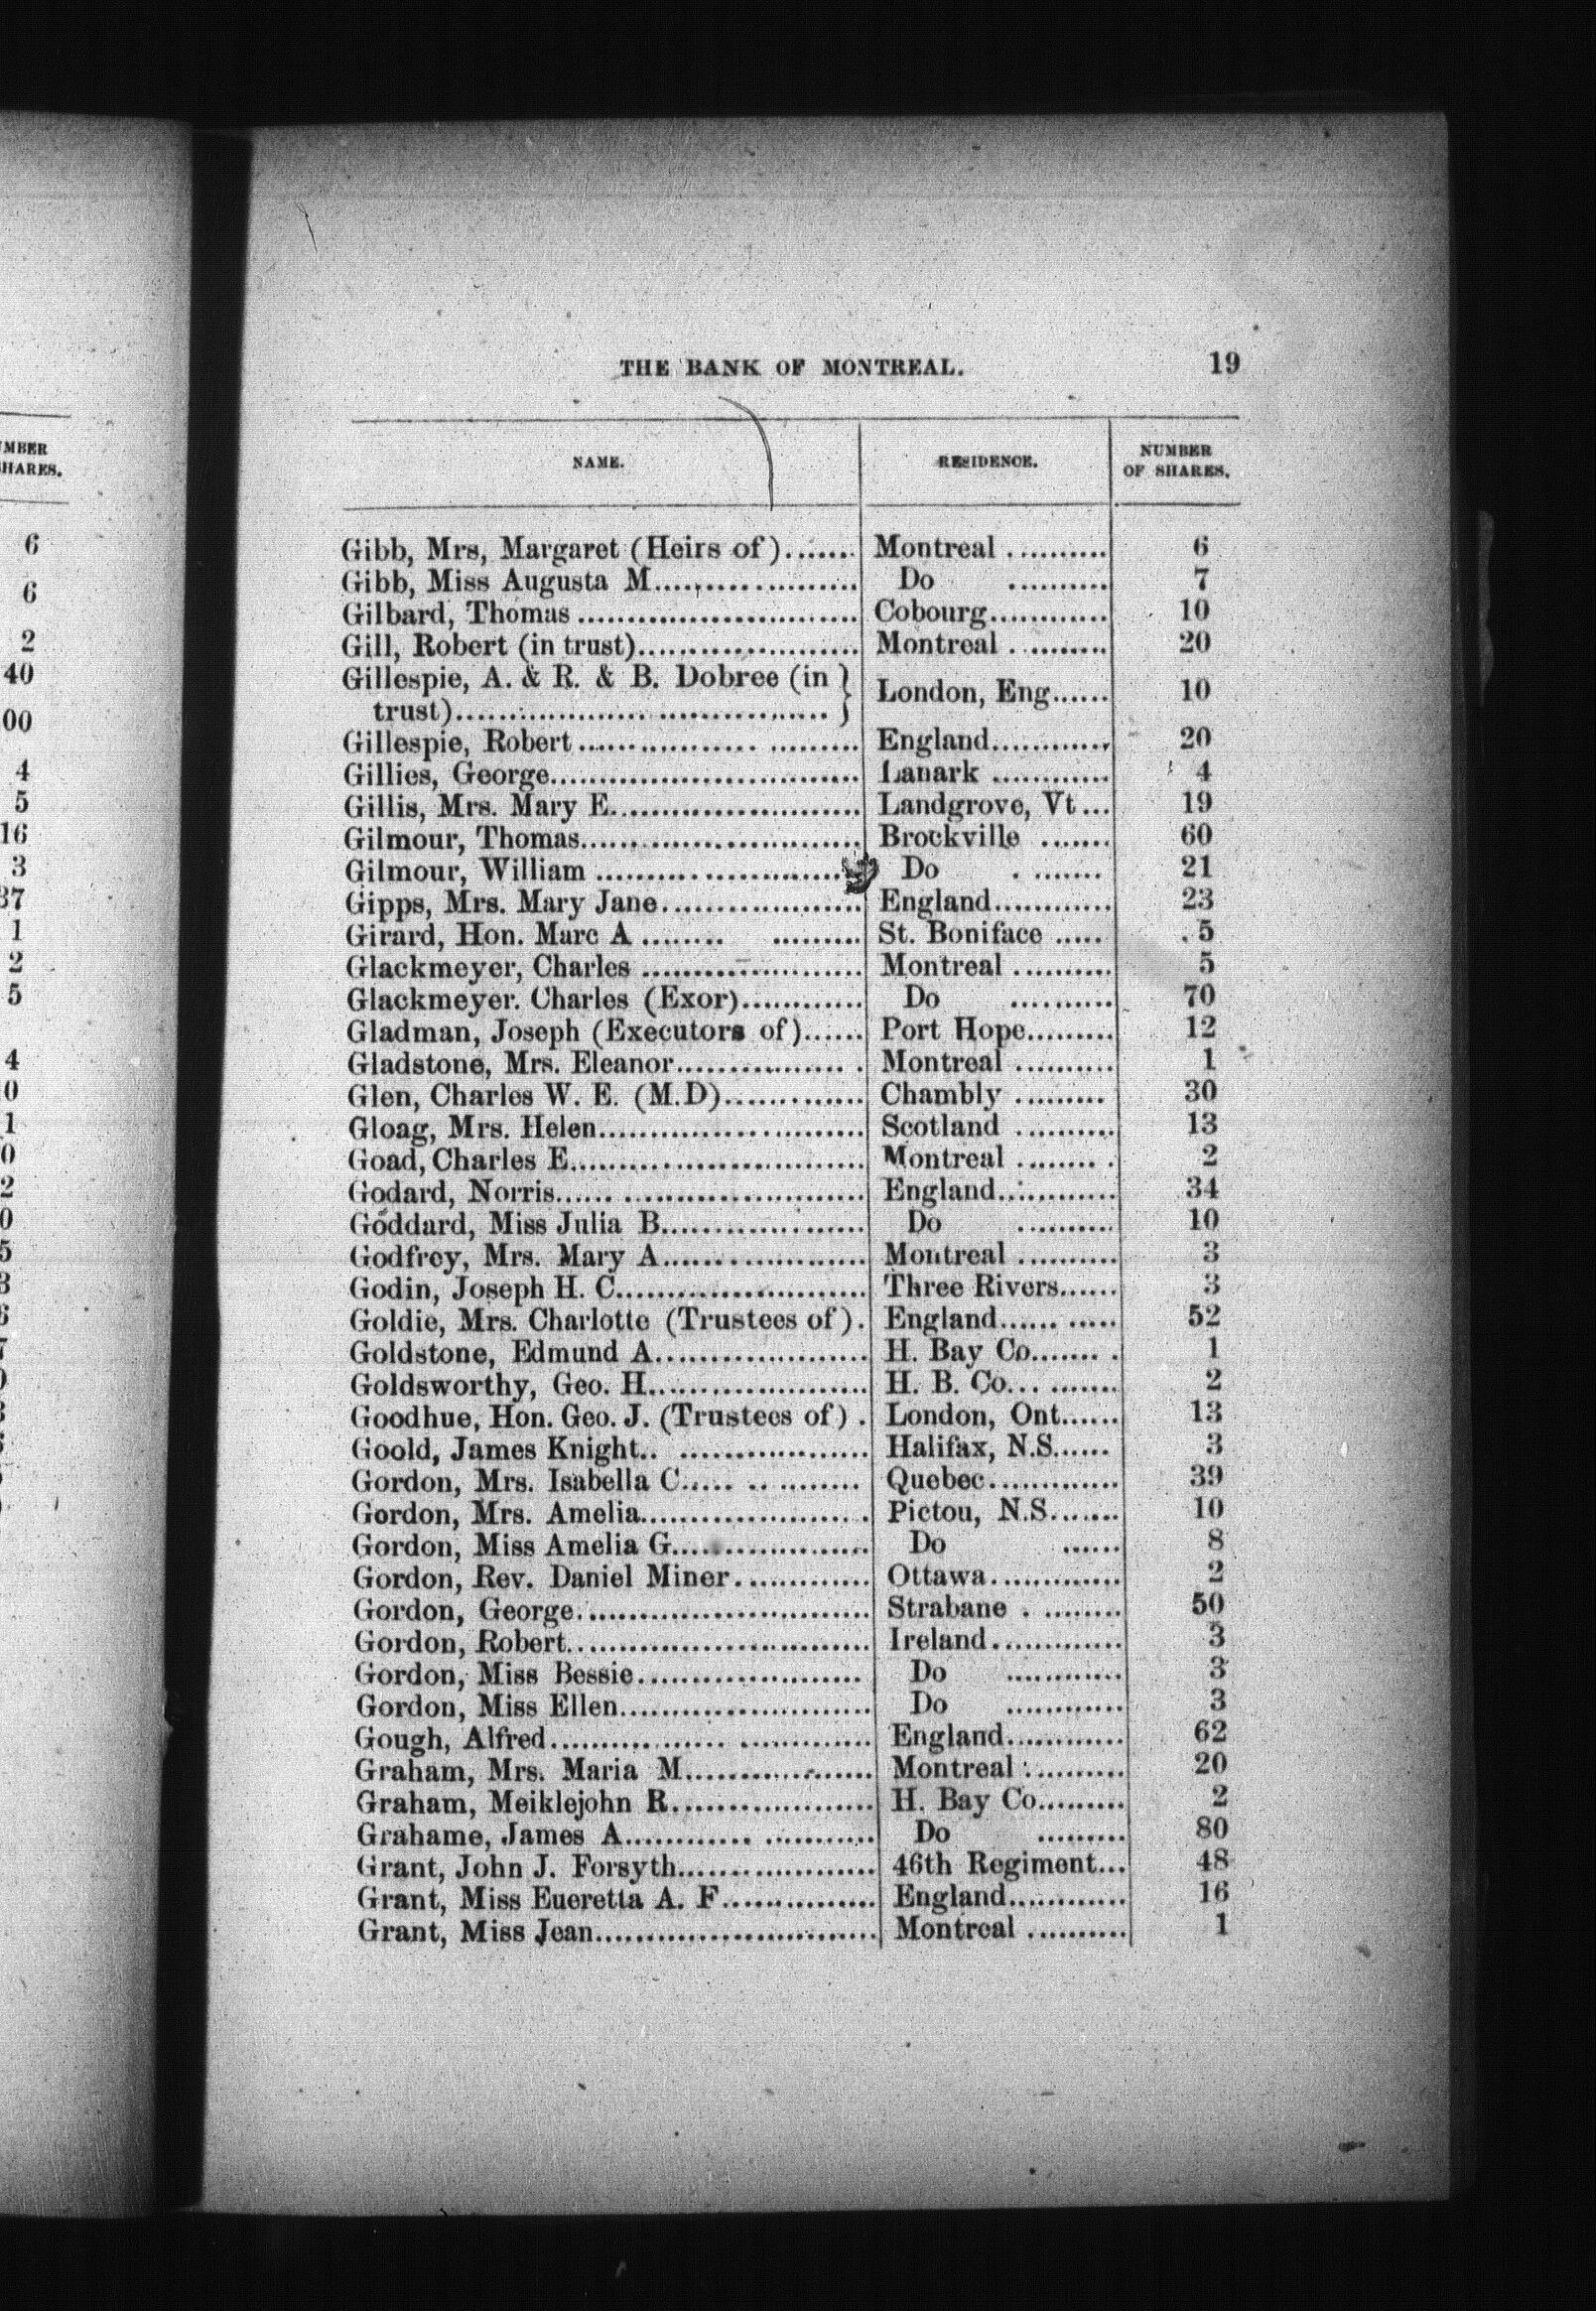 THE BANK OF MONTREAL. 19
NAME. RESIDENCE. NUMBER
OF SHARES.
Gibb, Mrs, Margaret (Heirs of)....... Montreal .......... 6
Gibb, Miss Augusta M.................... Do .......... 7
Gilbard, Thomas ........................... Cobourg............ 10
Gill, Robert (in trust)..................... Montreal .......... 20
Gillespie, A. & R. & B. Dobree (in } London, Eng...... 10
trust)....................................
Gillespie, Robert .......................... England............ 20
Gillies, George.............................. Lanark ............ 4
Gillis, Mrs. Mary E........................ Landgrove, Vt... 19
Gilmour, Thomas........................... Brockville ....... 60
Gilmour, William ........................ Do ........ 21
Gipps, Mrs. Mary Jane.................... England............ 23
Girard, Hon. Marc A ........ ......... St. Boniface ..... 5
Glackmeyer, Charles ...................... Montreal .......... 5
Glackmeyer. Charles (Exor)............ Do .......... 70
Gladman, Joseph (Executors of)...... Port Hope......... 12
Gladstone, Mrs. Eleanor.................. Montreal .......... 1
Glen, Charles W. E. (M.D)............. Chambly ......... 30
Gloag, Mrs. Helen.......................... Scotland .......... 13
Goad, Charles E............................. Montreal ......... 2
Godard, Norris.............................. England............ 34
Goddard, Miss Julia B.................... Do .......... 10
Godfrey, Mrs. Mary A.................... Montreal .......... 3
Godin, Joseph H. C........................ Three Rivers...... 3
Goldie, Mrs. Charlotte (Trustees of). England...... ..... 52
Goldstone, Edmund A..................... H. Bay Co........ 1
Goldsworthy, Geo. H...................... H. B. Co.......... 2
Goodhue, Hon. Geo. J. (Trustees of) . London, Ont...... 13
Goold, James Knight.. .................. Halifax, N.S...... 3
Gordon, Mrs. Isabella C..... .. ........ Quebec............. 39
Gordon, Mrs. Amelia...................... Pictou, N.S....... 10
Gordon, Miss Amelia G................... Do ...... 8
Gordon, Rev. Daniel Miner............. Ottawa............. 2
Gordon, George............................ Strabane . ........ 50
Gordon, Robert............................. Ireland............. 3
Gordon, Miss Bessie...................... Do ............ 3
Gordon, Miss Ellen........................ Do ............ 3
Gough, Alfred................. ............. England............ 62
Graham, Mrs. Maria M................... Montreal .......... 20
Graham, Meiklejohn R.................... H. Bay Co......... 2
Grahame, James A............. ........... Do ......... 80
Grant, John J. Forsyth................... 46th Regiment... 48
Grant, Miss Eueretta A. F............... England............ 16
Grant, Miss Jean........................... Montreal .......... 1